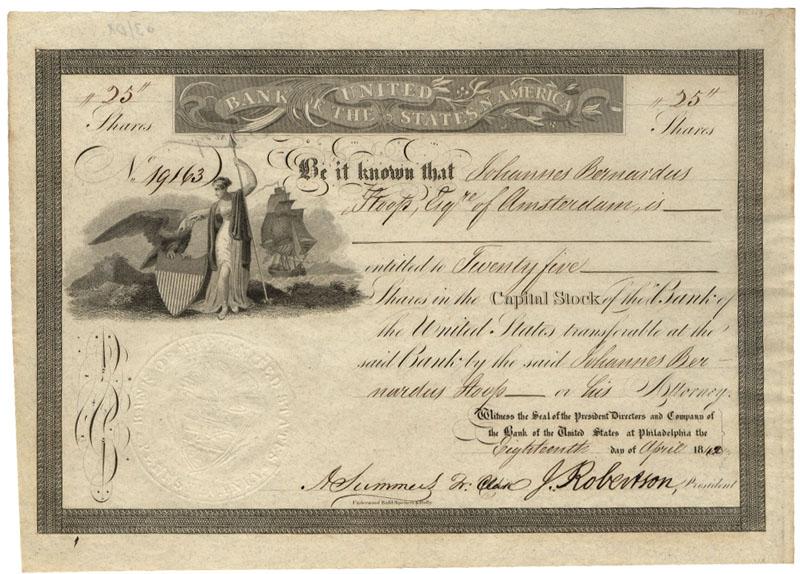 BANK OF THE UNITED STATES N AMERICA
# 25"
Shares
# 25"
Shares
No. 19163
Be it known that Johannes Bernardus
Stoop, Esqre of Amsterdam, is
entitled to Twenty five
Shares in the Capital Stock of the Bank of
the United States transferable at the
said Bank by the said Johannes Ber-
nardus Stoop or his Attorney.
Witness the Seal of the President Directors and Company of
the Bank of the United States at Philadelphia the
Eighteenth day of April 1842
A Summers Tr. Clerk J. Robertson, President